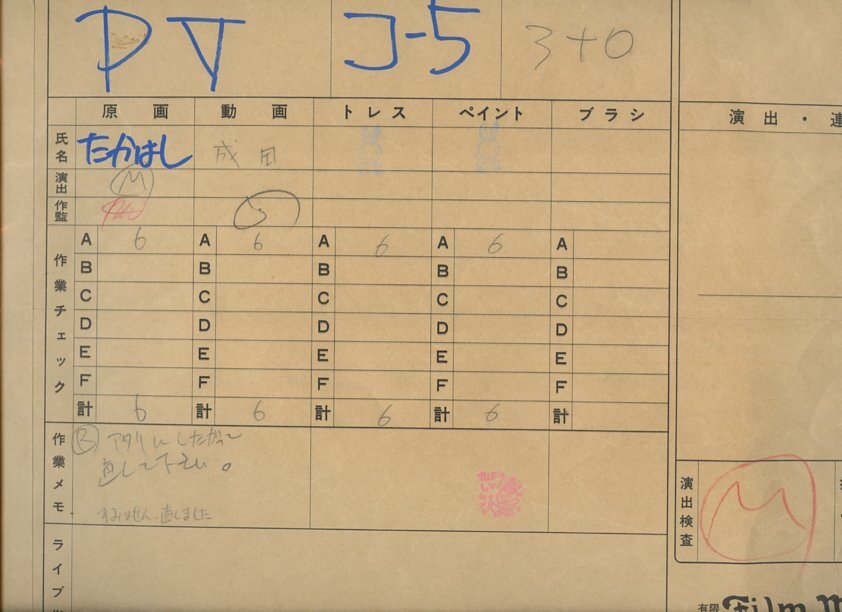 PV コ-5 3+0
原画 動画 トレス ペイント ブラシ 演出・連
氏名 たかはし 成田
演出 M
作監
作業チェック
A 6 A 6 A 6 A 6 A
B B B B B
C C C C C
D D D D D
E E E E E
F F F F F
計 6 計 6 計 6 計 6 計
作業メモ
Ⓑ アタリにしたがって
直して下さい。
すみません、直しました
演出検査 M
ライブ
有限 Film M